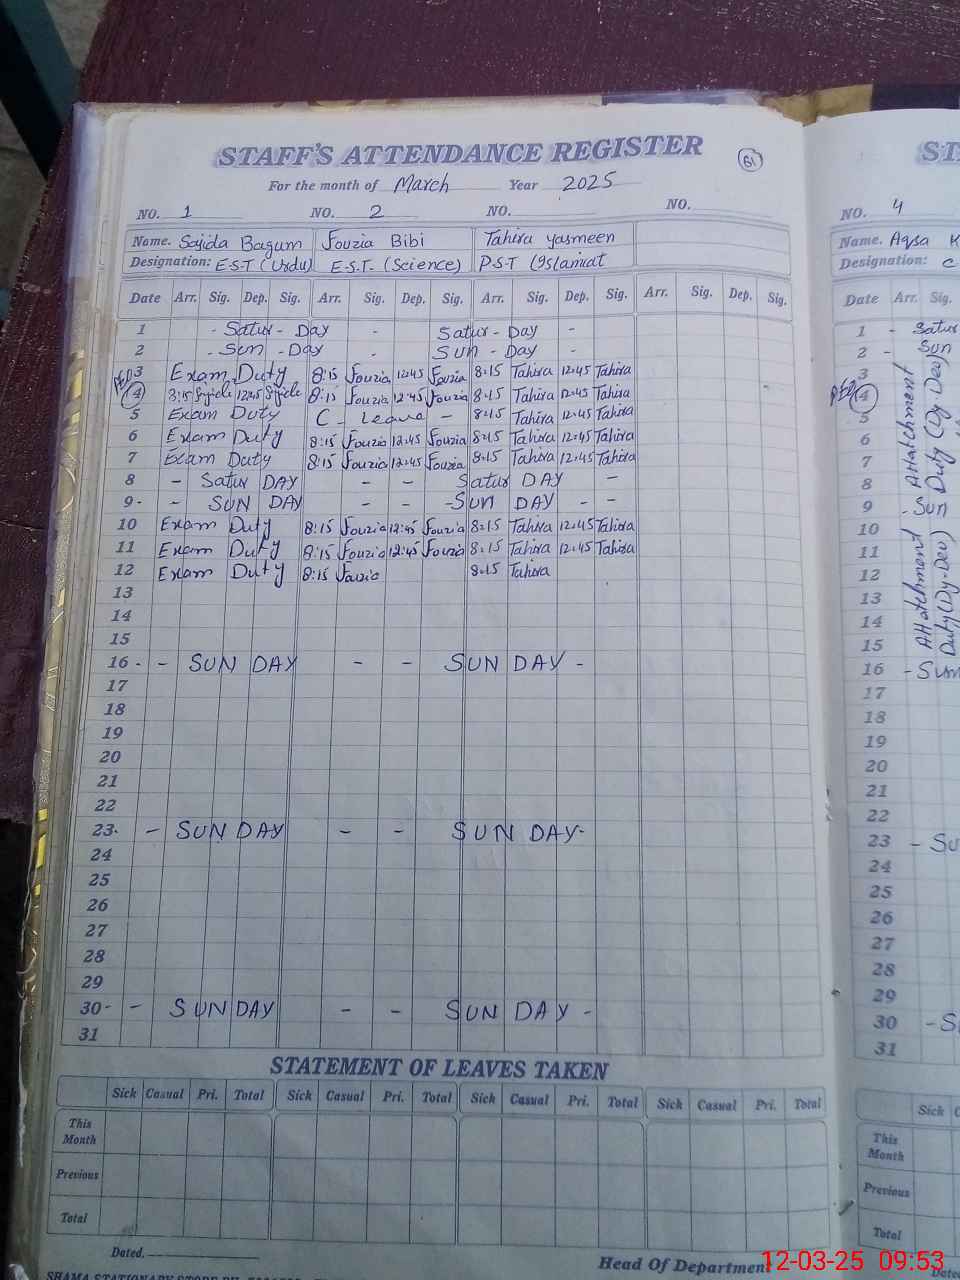 STAFF'S ATTENDANCE REGISTER
61
For the month of March Year 2025
NO. 1 NO. 2 NO. NO.
Name. Sajida Bagum Fouzia Bibi Tahira yasmeen
Designation: E.S.T (Urdu) E.S.T. (Science) P.S.T (Islamiat
Date Arr. Sig. Dep. Sig. Arr. Sig. Dep. Sig. Arr. Sig. Dep. Sig. Arr. Sig. Dep. Sig.
1 - Satur - Day - Satur - Day -
2 - Sun - Day - Sun - Day -
3 Exam Duty 8:15 Fouzia 12:45 Fouzia 8:15 Tahira 12:45 Tahira
4 8:15 Sajida 12:45 Sajida 8:15 Fouzia 12:45 Fouzia 8:15 Tahira 12:45 Tahira
5 Exam Duty C. Leave - 8:15 Tahira 12:45 Tahira
6 Exam Duty 8:15 Fouzia 12:45 Fouzia 8:15 Tahira 12:45 Tahira
7 Exam Duty 8:15 Fouzia 12:45 Fouzia 8:15 Tahira 12:45 Tahira
8 - Satur DAY - - Satur DAY -
9 - - SUN DAY - - - SUN DAY - -
10 Exam Duty 8:15 Fouzia 12:45 Fouzia 8:15 Tahira 12:45 Tahira
11 Exam Duty 8:15 Fouzia 12:45 Fouzia 8:15 Tahira 12:45 Tahira
12 Exam Duty 8:15 Fouzia 8:15 Tahira
13
14
15
16 - - SUN DAY - - SUN DAY -
17
18
19
20
21
22
23 - - SUN DAY - - SUN DAY -
24
25
26
27
28
29
30 - - SUN DAY - - SUN DAY -
31
STATEMENT OF LEAVES TAKEN
Sick Casual Pri. Total Sick Casual Pri. Total Sick Casual Pri. Total Sick Casual Pri. Total
This Month
Previous
Total
Dated.
Head Of Department
SHAMA STATIONARY STORE
ST
NO. 4
Name. Aqsa K
Designation: C
Date Arr. Sig.
1 - Satur
2 - Sun
3
4
5
6
7
8
Attatchment
Duty (Dy-Deo)
9 - Sun
10
11
12
13
14
15
Attatchment
Duty (Dy-Deo)
16 - Sun
17
18
19
20
21
22
23 - Su
24
25
26
27
28
29
30 - S
31
Sick C
This Month
Previous
Total
Date
12-03-25 09:53